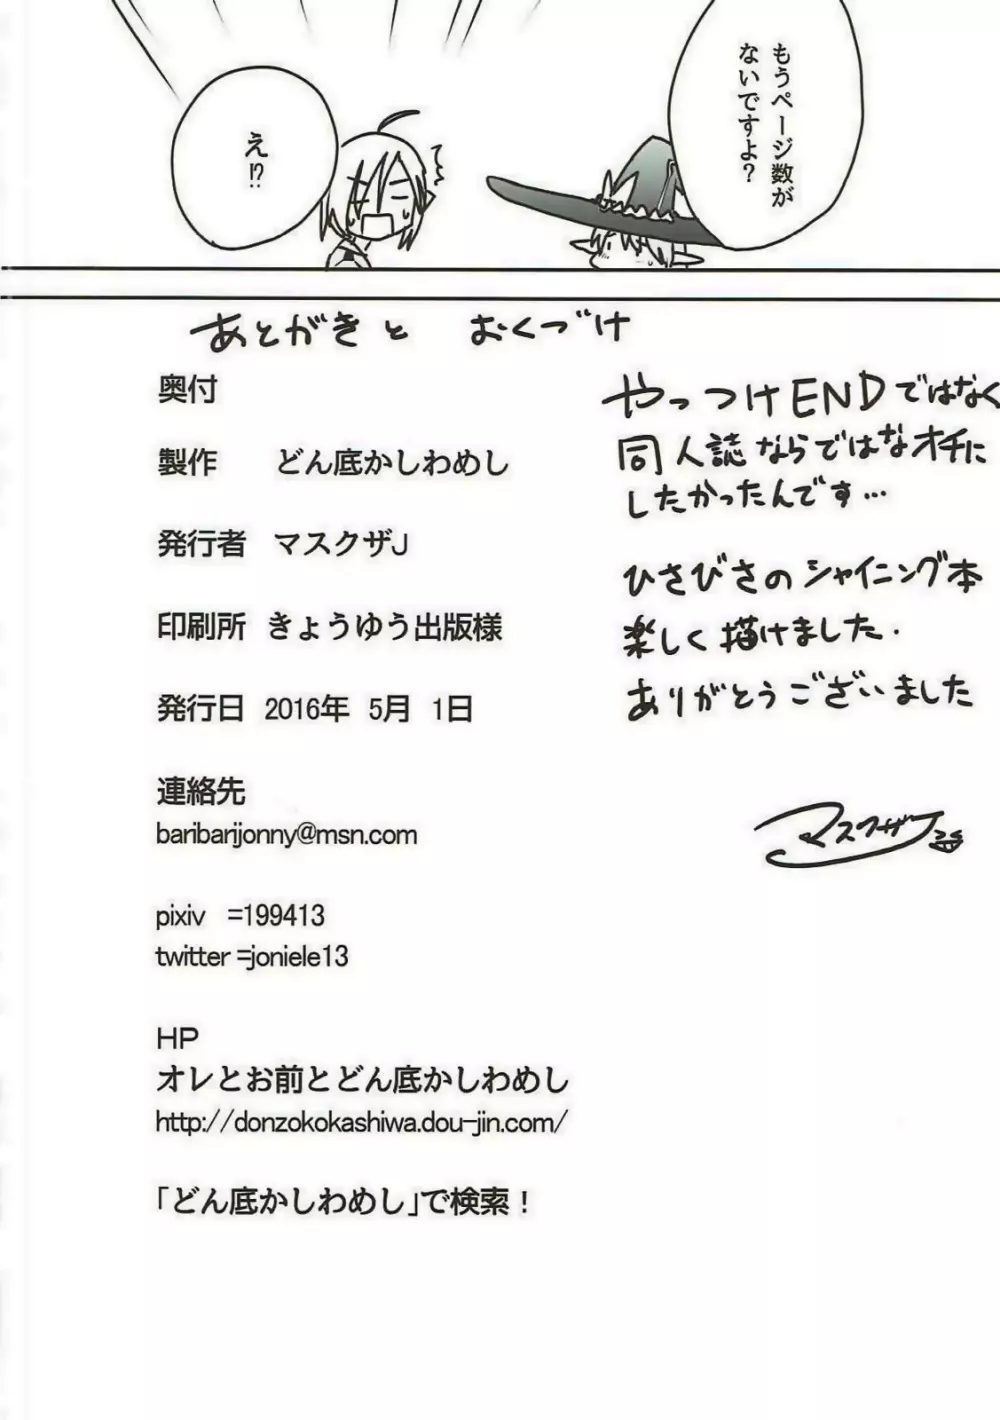 もうページ数が
ないですよ?
え!?
あとがきと おくづけ
やっつけENDではなく
同人誌ならではなオチに
したかったんです…
ひさびさのシャイニング本
楽しく描けました.
ありがとうございました
マスクザJ
奥付
製作 どん底かしわめし
発行者 マスクザJ
印刷所 きょうゆう出版様
発行日 2016年 5月 1日
連絡先
baribarijonny@msn.com
pixiv =199413
twitter =joniele13
HP
オレとお前とどん底かしわめし
http://donzokokashiwa.dou-jin.com/
「どん底かしわめし」で検索!